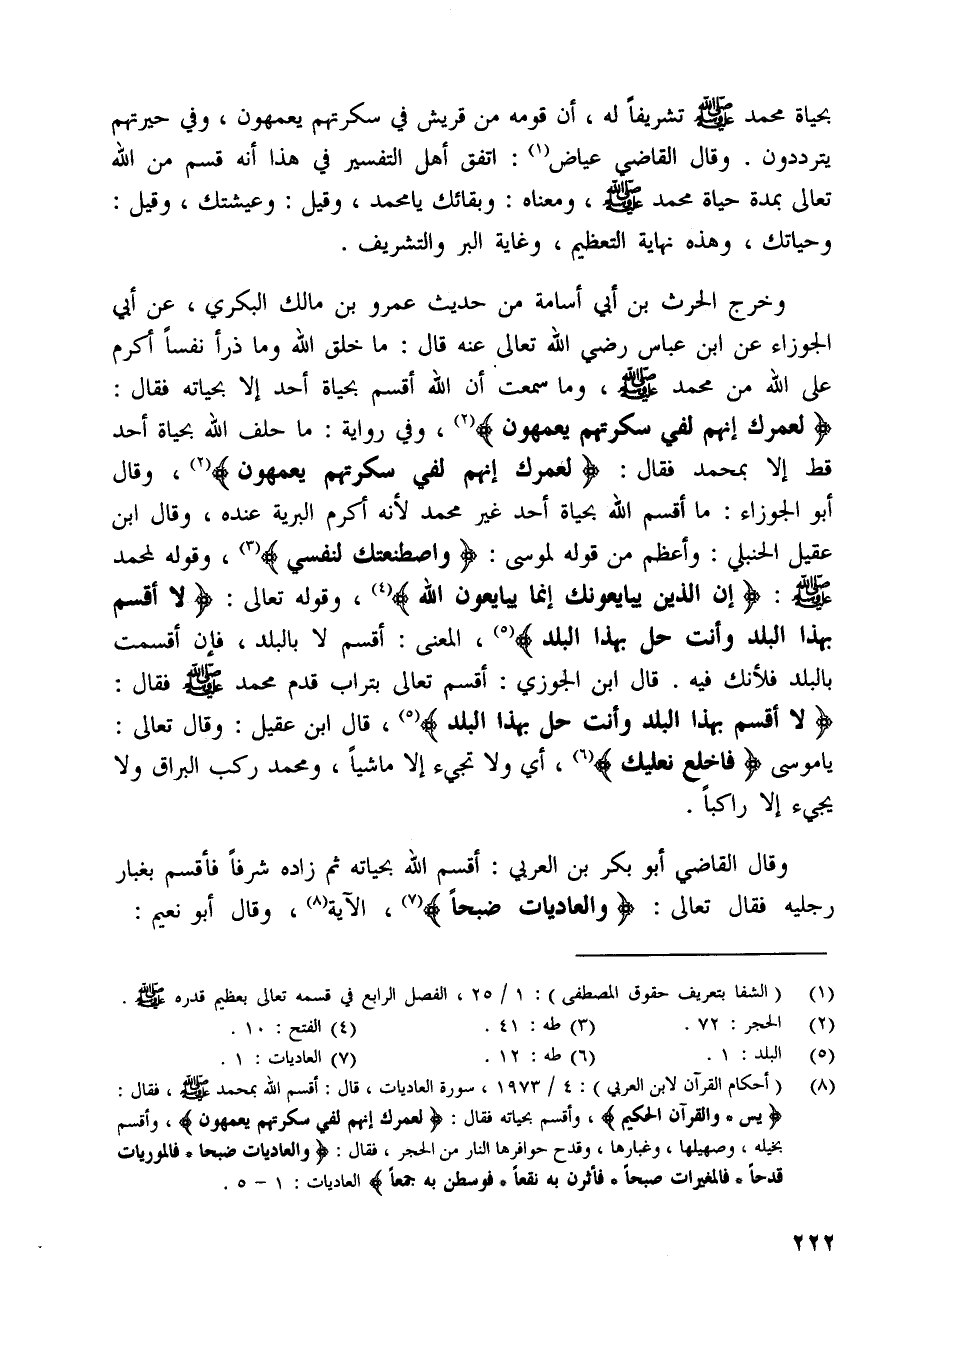 بحياة محمد ﷺ تشريفاً له ، أن قومه من قريش في سكرتهم يعمهون ، وفي حيرتهم
يترددون . وقال القاضي عياض(١) : اتفق أهل التفسير في هذا أنه قسم من الله
تعالى بمدة حياة محمد ﷺ ، ومعناه : وبقائك يامحمد ، وقيل : وعيشتك ، وقيل :
وحياتك ، وهذه نهاية التعظيم ، وغاية البر والتشريف .
وخرج الحرث بن أبي أسامة من حديث عمرو بن مالك البكري ، عن أبي
الجوزاء عن ابن عباس رضي الله تعالى عنه قال : ما خلق الله وما ذرأ نفساً أكرم
على الله من محمد ﷺ ، وما سمعت أن الله أقسم بحياة أحد إلا بحياته فقال :
﴿ لعمرك إنهم لفي سكرتهم يعمهون ﴾(٢) ، وفي رواية : ما حلف الله بحياة أحد
قط إلا بمحمد فقال : ﴿ لعمرك إنهم لفي سكرتهم يعمهون ﴾(٢) ، وقال
أبو الجوزاء : ما أقسم الله بحياة أحد غير محمد لأنه أكرم البرية عنده ، وقال ابن
عقيل الحنبلي : وأعظم من قوله لموسى : ﴿ واصطنعتك لنفسي ﴾(٣) ، وقوله لمحمد
ﷺ : ﴿ إن الذين يبايعونك إنما يبايعون الله ﴾(٤) ، وقوله تعالى : ﴿ لا أقسم
بهذا البلد وأنت حل بهذا البلد ﴾(٥) ، المعنى : أقسم لا بالبلد ، فإن أقسمت
بالبلد فلأنك فيه . قال ابن الجوزي : أقسم تعالى بتراب قدم محمد ﷺ فقال :
﴿ لا أقسم بهذا البلد وأنت حل بهذا البلد ﴾(٥) ، قال ابن عقيل : وقال تعالى :
ياموسى ﴿ فاخلع نعليك ﴾(٦) ، أي ولا تجيء إلا ماشياً ، ومحمد ركب البراق ولا
يجيء إلا راكباً .
وقال القاضي أبو بكر بن العربي : أقسم الله بحياته ثم زاده شرفاً فأقسم بغبار
رجليه فقال تعالى : ﴿ والعاديات ضبحاً ﴾(٧) ، الآية(٨) ، وقال أبو نعيم :
(١) ( الشفا بتعريف حقوق المصطفى ) : ١ / ٢٥ ، الفصل الرابع في قسمه تعالى بعظيم قدره ﷺ .
(٢) الحجر : ٧٢ . (٣) طه : ٤١ . (٤) الفتح : ١٠ .
(٥) البلد : ١ . (٦) طه : ١٢ . (٧) العاديات : ١ .
(٨) ( أحكام القرآن لابن العربي ) : ٤ / ١٩٧٣ ، سورة العاديات ، قال : أقسم الله بمحمد ﷺ ، فقال :
﴿ يس * والقرآن الحكيم ﴾ ، وأقسم بحياته فقال : ﴿ لعمرك إنهم لفي سكرتهم يعمهون ﴾ ، وأقسم
بخيله ، وصهيلها ، وغبارها ، وقدح حوافرها النار من الحجر ، فقال : ﴿ والعاديات ضبحا * فالموريات
قدحاً * فالمغيرات صبحاً * فأثرن به نقعاً * فوسطن به جمعاً ﴾ العاديات : ١ - ٥ .
٢٢٢